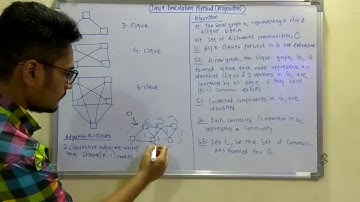 Clique Percolation Method (Algorithm)
3-Clique
4-Clique
5-Clique
Adjacent K-cliques
2 cliques are adjacent when
they share (K-1) nodes
Algorithm
I/P: The Social graph G, representing
Clique size
O/P: Set of Identified Communities, C
S1: All K-cliques present in G are extracted
S2: A new graph, the clique graph, GC is
formed where each node represents an
identified clique & 2 vertices in GC are
connected by an edge, if they have
(K-1) common vertices
S3: Connected components in GC are
identified
S4: Each connected component in GC
represents a community
S5: Set C, be the set of Communi-
ties formed for G.